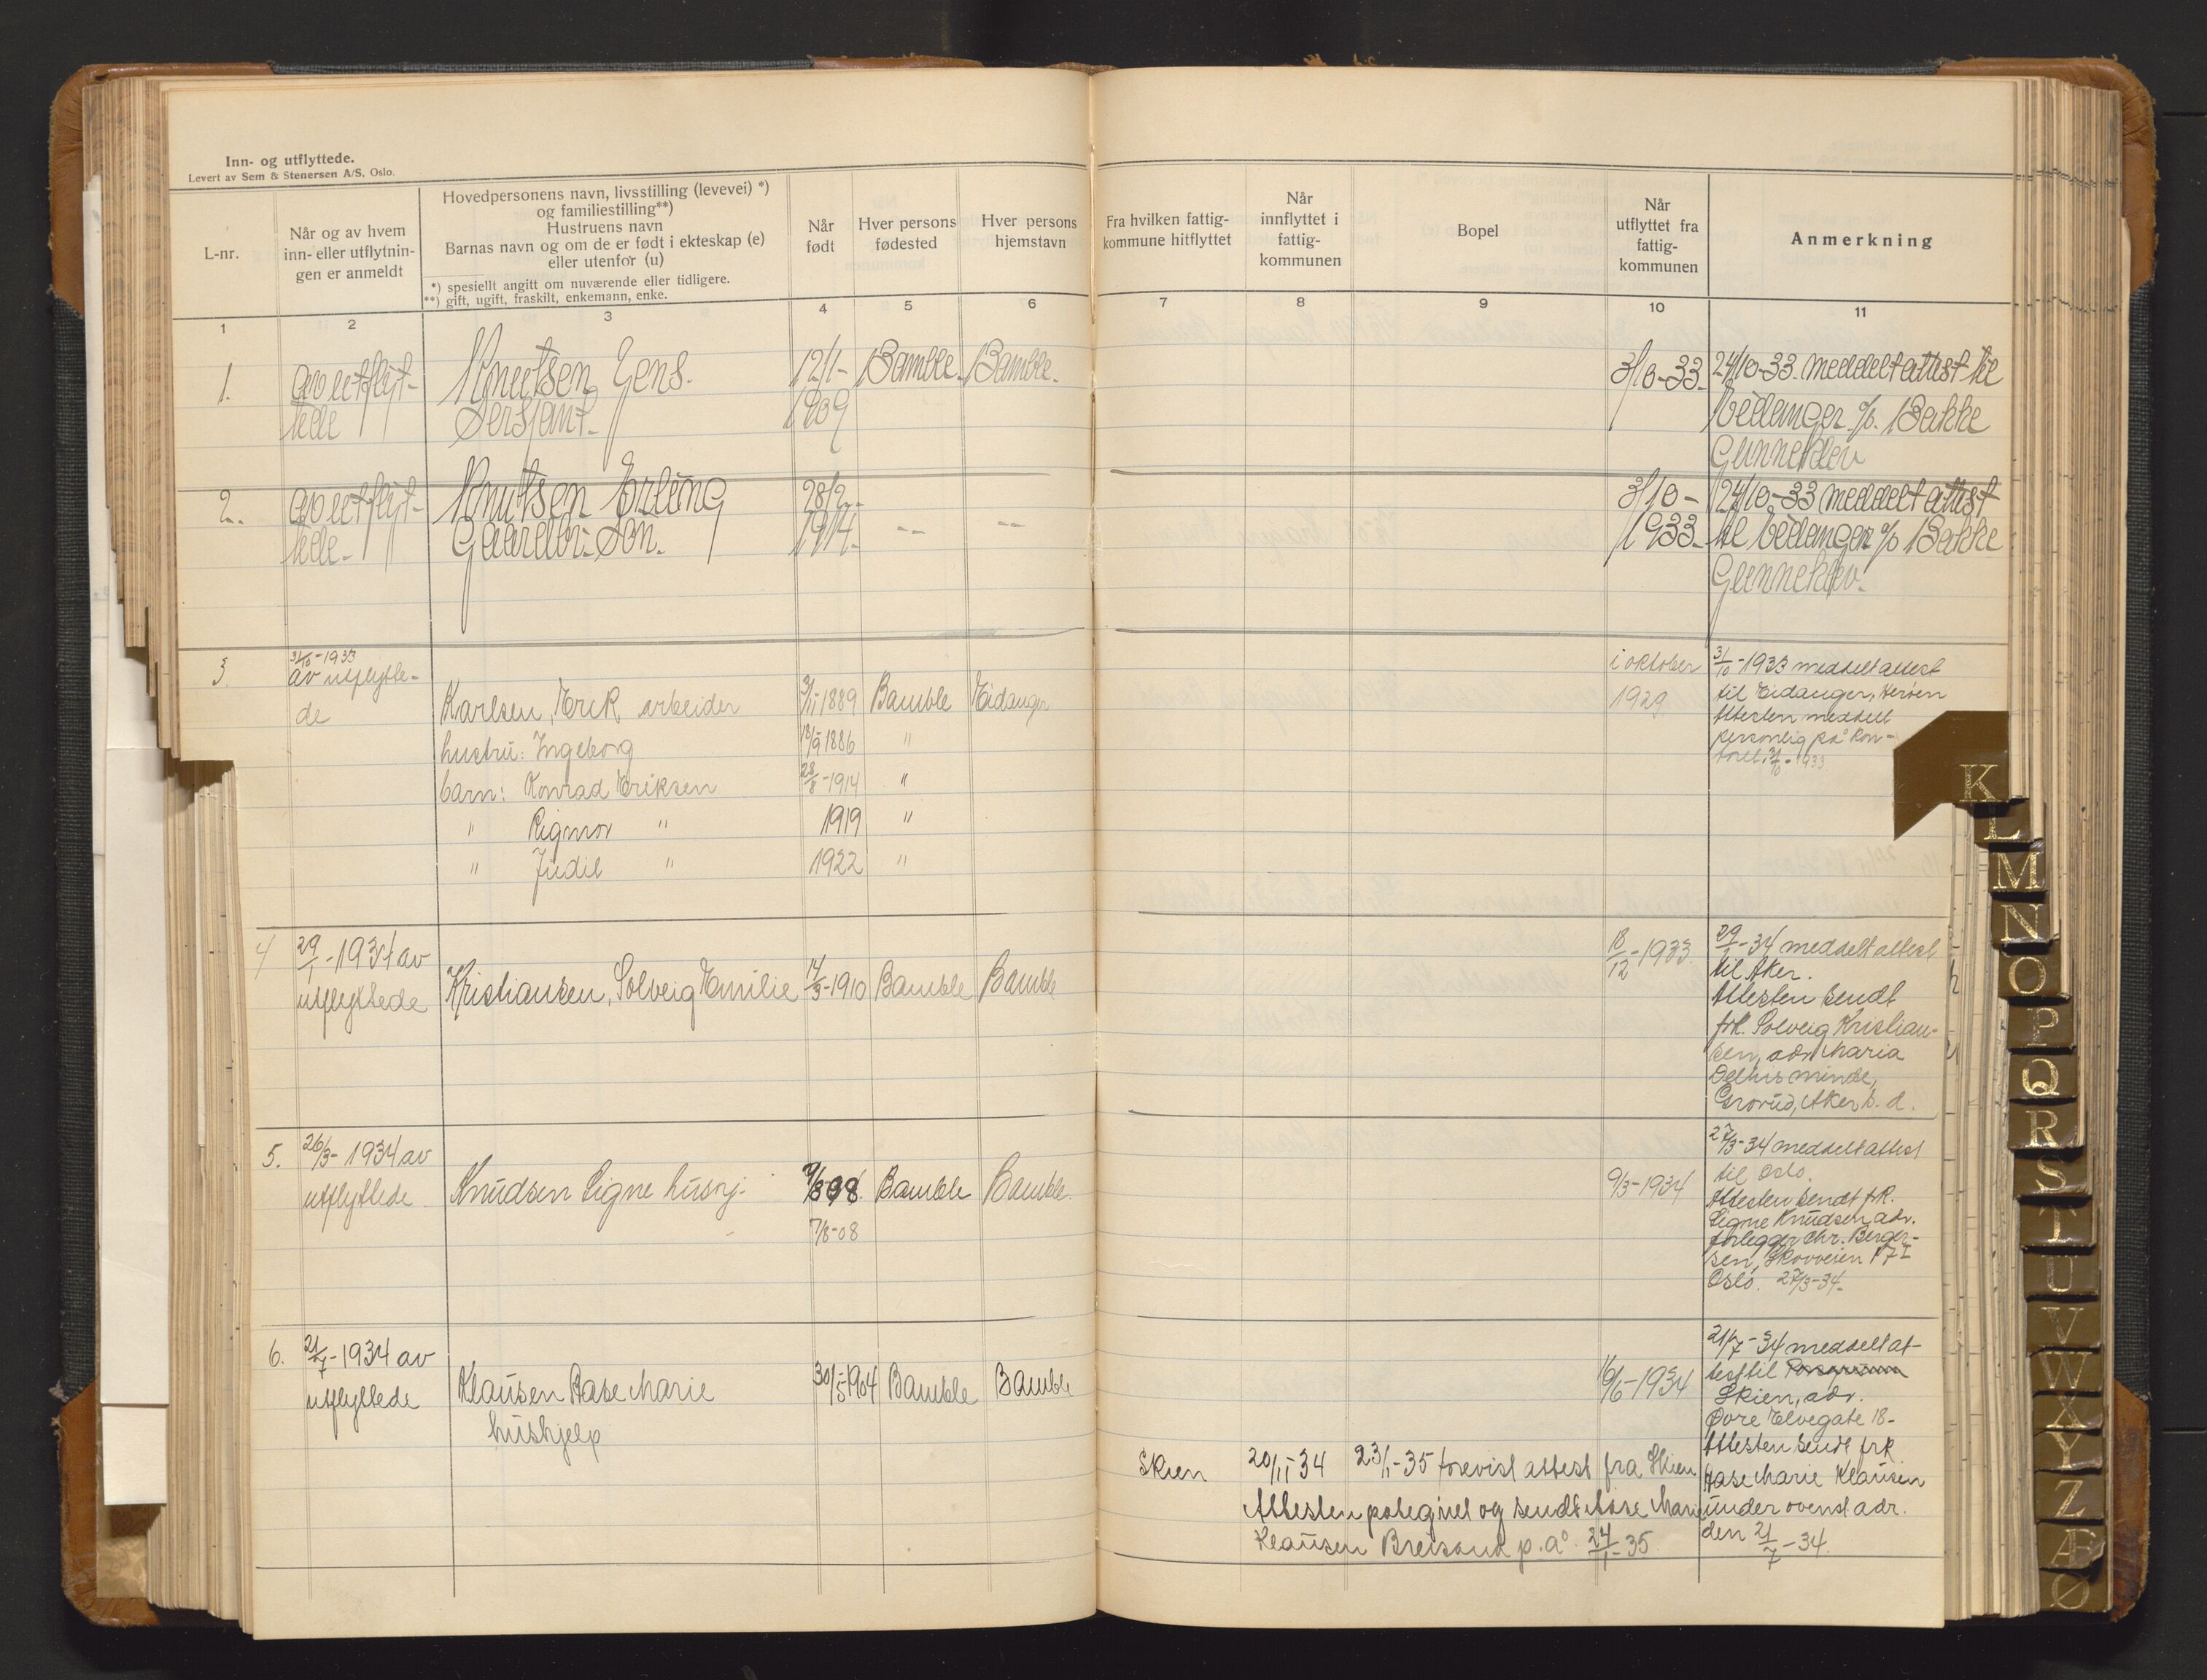 Inn- og utflyttede.
Levert av Sem & Stenersen A/S, Oslo.
L-nr.
Når og av hvem
inn- eller utflytnin-
gen er anmeldt
Hovedpersonens navn, livsstilling (levevei) *)
og familiestilling**)
Hustruens navn
Barnas navn og om de er født i ekteskap (e)
eller utenfor (u)
*) spesiellt angitt om nuværende eller tidligere.
**) gift, ugift, fraskilt, enkemann, enke.
Når
født
Hver persons
fødested
Hver persons
hjemstavn
Fra hvilken fattig-
kommune hitflyttet
Når
innflyttet i
fattig-
kommunen
Bopel
Når
utflyttet fra
fattig-
kommunen
Anmerkning
1 2 3 4 5 6 7 8 9 10 11
1. av utflyt- Knutsen Jens. 12/1- Bamble. Bamble. 3/10-33. 24/10-33. meddelt attest til
tede Sersjant. 1909 Eidanger %. Bakke
Gunneklev
2. av utflyt- Knutsen Erling 28/2- 3/10- 24/10-33 meddelt attest
tede- Gaardbr. Søn. 1914. -"- -"- 1933. til Eidanger % Bakke
Gunneklev.
3. 31/10-1933 i oktober 31/10-1933 meddelt attest
av utflytte- 1929 til Eidanger, Herøen
de Karlsen, Erik arbeider 3/11 1889 Bamble Eidanger Attesten meddelt
hustru: Ingeborg 18/9 1886 " personlig på kon-
barn: Konrad Eriksen 28/8-1914 " toret 31/10-1933
" Rigmor " 1919 "
" Judil " 1922 "
4 29/1-1934 av 18/12-1933. 29/1-34 meddelt attest
utflyttede Kristiansen, Solveig Emilie 14/3-1910 Bamble Bamble til Aker.
Attesten sendt
frk. Solveig Kristian-
sen, adr. Maria
Dehlis minde,
Grorud, Aker h. d.
5. 26/3-1934 av 27/3-34 meddelt attest
utflyttede Knudsen Signe hushj. 7/8 08. Bamble Bamble. 9/3-1934 til Oslo.
7/8-08 Attesten sendt frk.
Signe Knudsen adr.
forlegger Chr. Berger-
sen, Skovveien 17 I
Oslo. 27/3-34.
6. 21/7-1934 av 21/7-34 meddelt at-
utflyttede Klausen Aase Marie 30/5-1904 Bamble Bamble 16/6-1934 test til Porsgrunn
hushjelp Skien, adr.
Øvre Elvegate 18-
Attesten sendt frk
Skien 20/11-34 23/1-35 forevist attest fra Skien Aase Marie Klausen
Attesten påtegnet og sendt Aase Marie under ovenst adr.
Klausen Breisand p. å. 24/1-35 den 21/7-34.
K
L
M
N
O
P
Q
R
S
T
U
V
W
X
Y
Z
Æ
Ø